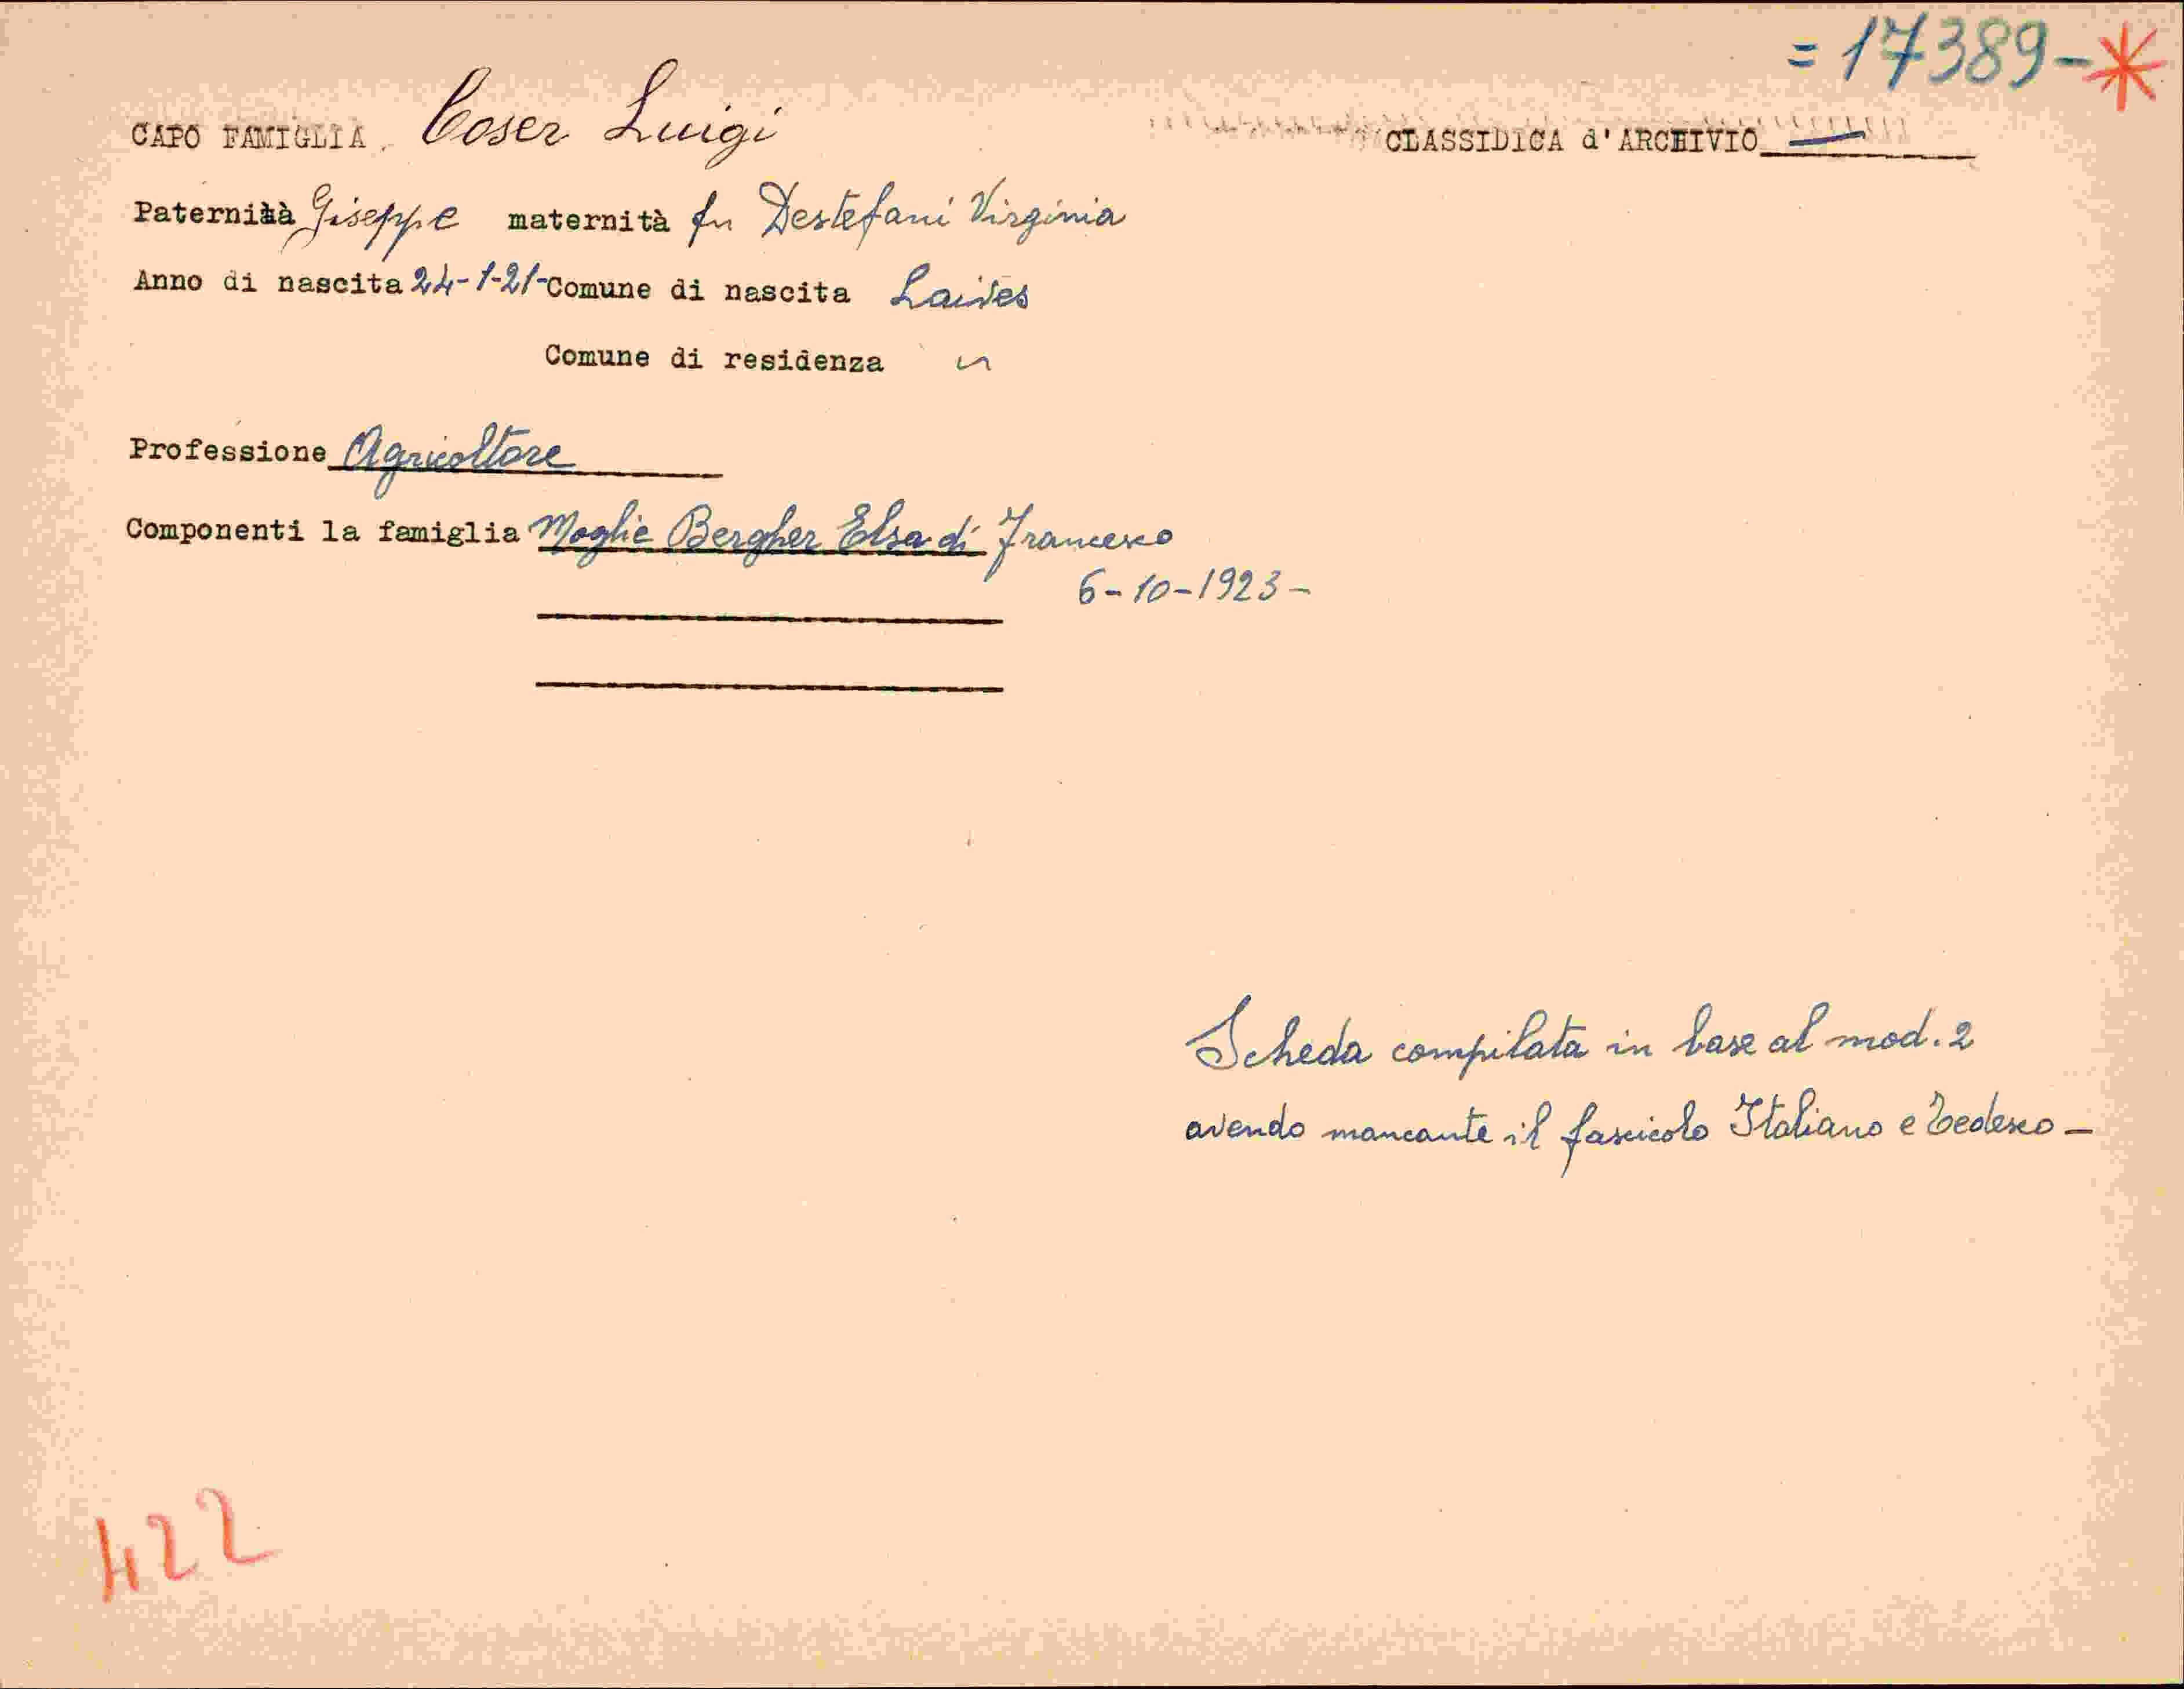 = 17389 - *
CAPO FAMIGLIA. Coser Luigi CLASSIDICA d'ARCHIVIO —
Paternità Giseppe maternità fu Destefani Virginia
Anno di nascita 24-1-21- Comune di nascita Laives
Comune di residenza "
Professione Agricoltore
Componenti la famiglia Moglie Bergher Elsa di Francesco
6-10-1923-
Scheda compilata in base al mod. 2
avendo mancante il fascicolo Italiano e Tedesco -
422